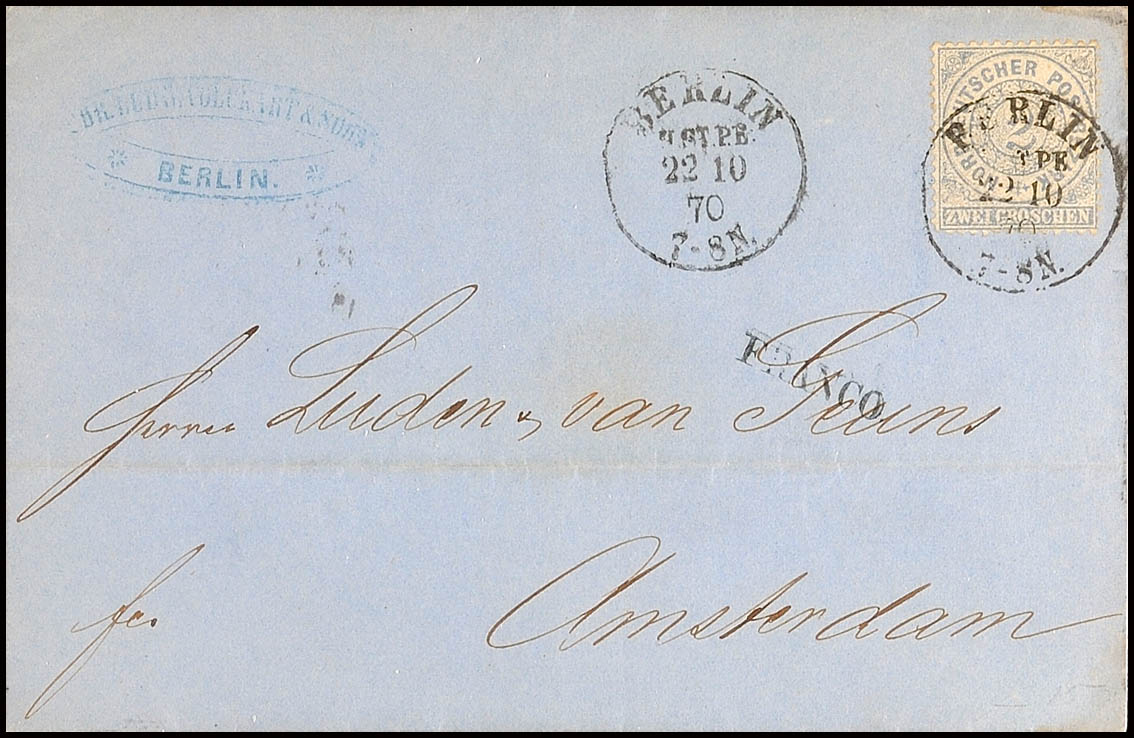 & SOHN
BERLIN.
BERLIN
P.E.
22 10
70
7-8N.
DEUTSCHER POST
2
ZWEI GROSCHEN
BERLIN
PE
22 10
70
7-8N.
FRANCO
Herren Luden & van Geuns
fco.
Amsterdam